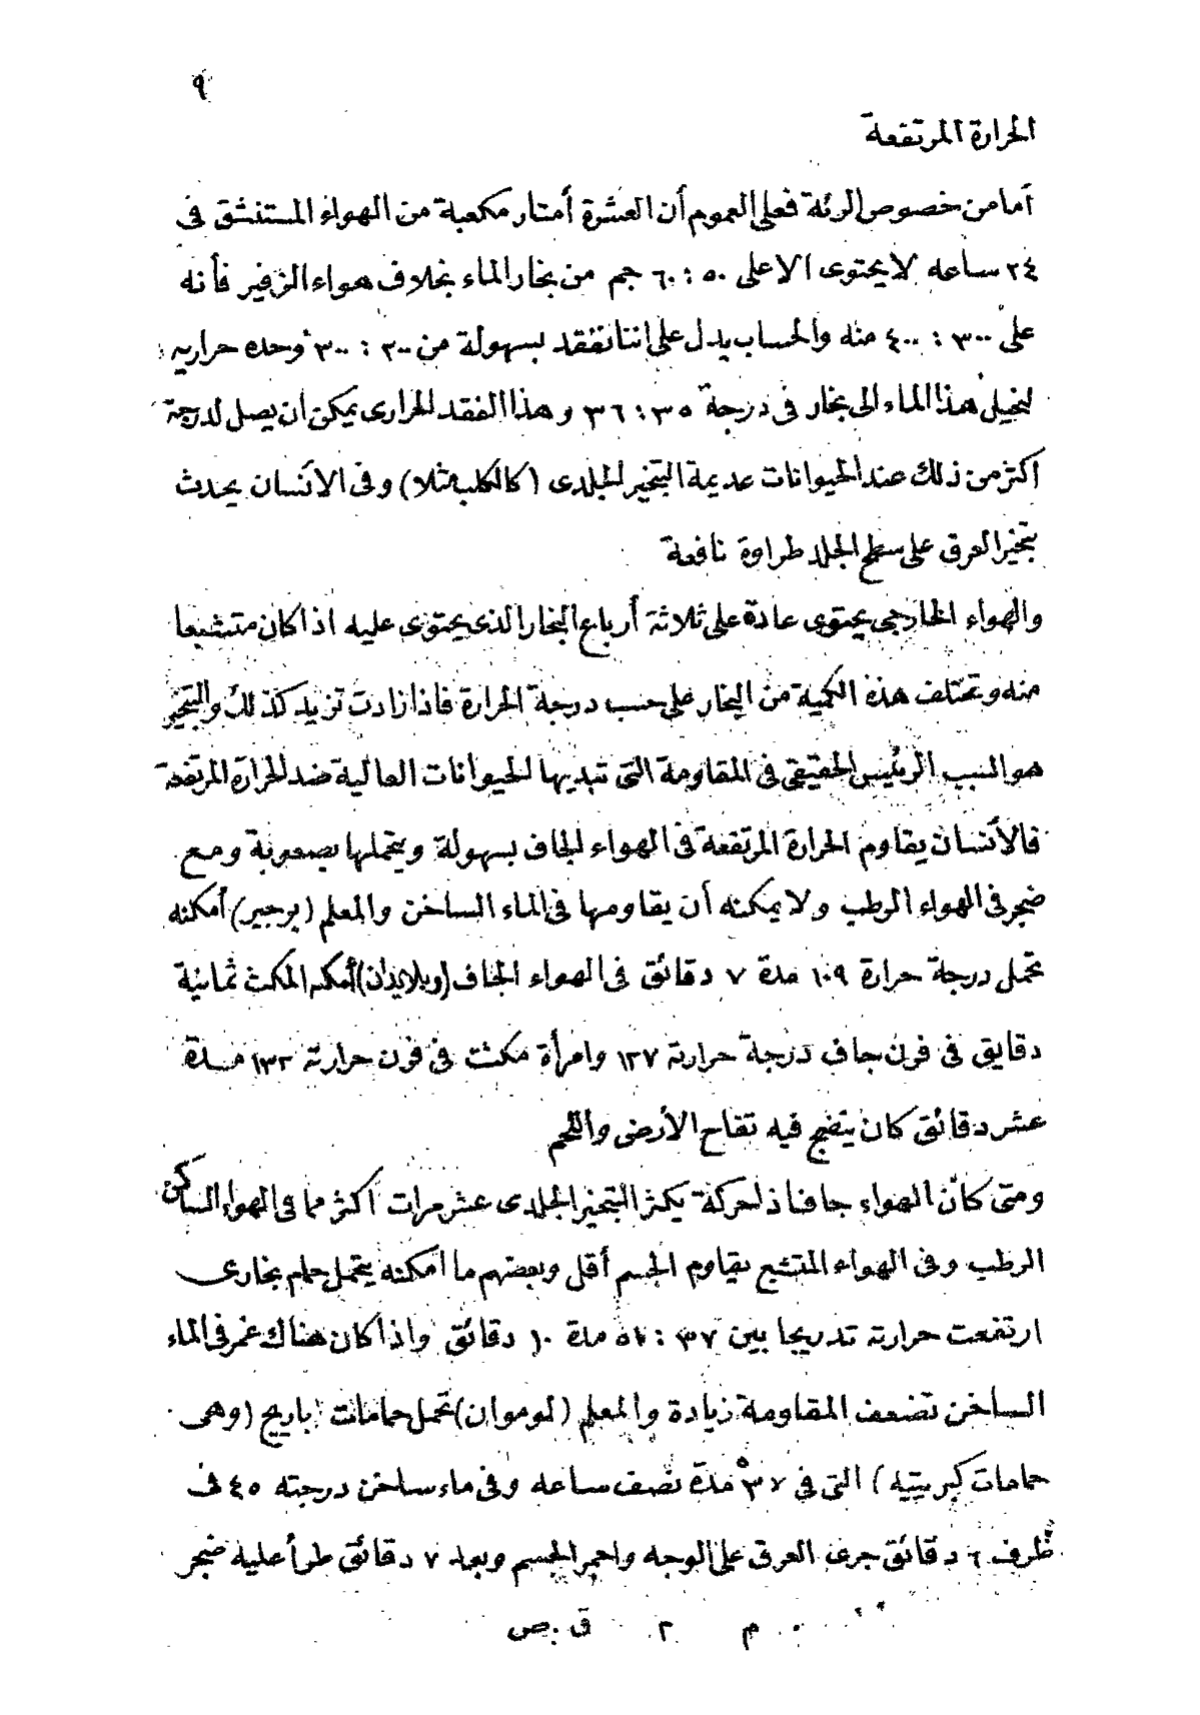 ٩
الحرارة المرتفعة
أما من خصوص الرئة فعلى العموم أن العشرة أمتار مكعبة من الهواء المستنشق فى
٢٤ ساعه لا يحتوى الا على ٥٠ : ٦٠ جم من بخار الماء بخلاف هواء الزفير فأنه
على ٣٠٠ : ٤٠٠ منه والحساب يدل على اننا نفقد بسهولة من ٢٠٠ : ٣٠٠ وحده حراريه
لنحيل هذا الماء الى بخار فى درجة ٣٥ : ٣٦ وهذا الفقد الحرارى يمكن ان يصل لدرجة
اكثر من ذلك عند الحيوانات عديمة التبخير الجلدى (كالكلب مثلا) وفى الأنسان يحدث
بتبخير العرق على سطح الجلد طراوة نافعة
والهواء الخارجى يحتوى عادة على ثلاثة أرباع البخار الذى يحتوى عليه اذا كان متشبعا
منه وتختلف هذه الكمية من البخار على حسب درجة الحرارة فاذا زادت تزيد كذلك والتبخير
هو السبب الرئيس الحقيقى فى المقاومة التى تبديها الحيوانات العالية ضد الحرارة المرتفعة
فالأنسان يقاوم الحرارة المرتفعة فى الهواء الجاف بسهولة ويتحملها بصعوبة ومع
ضجر فى الهواء الرطب ولا يمكنه أن يقاومها فى الماء الساخن والمعلم (برجير) أمكنه
تحمل درجة حرارة ١٠٩ مدة ٧ دقائق فى الهواء الجاف (وبلايدان) أمكنه المكث ثمانية
دقايق فى فرن جاف درجة حرارته ١٢٧ وامرأة مكثت فى فرن حرارته ١٣٢ مدة
عشر دقائق كان ينضج فيه تفاح الأرض واللحم
ومتى كان الهواء جافا ذا حركة يكثر التبخير الجلدى عشر مرات اكثر مما فى الهواء الساكن
الرطب وفى الهواء المتشبع يقاوم الجسم أقل وبعضهم ما امكنه يتحمل حمام بخارى
ارتفعت حرارته تدريجا بين ٣٧ : ٥١ مدة ١٠ دقائق واذا كان هناك غمر فى الماء
الساخن تضعف المقاومة زيادة والمعلم (لوموان) تحمل حمامات باريج (وهى
حمامات كبريتيه) التى فى ٣٧° مدة نصف ساعه وفى ماء ساخن درجته ٤٥ فى
ظرف ٦ دقائق جرى العرق على الوجه واحمر الجسم وبعد ٧ دقائق طرأ عليه ضجر
م ٢ ق . ص